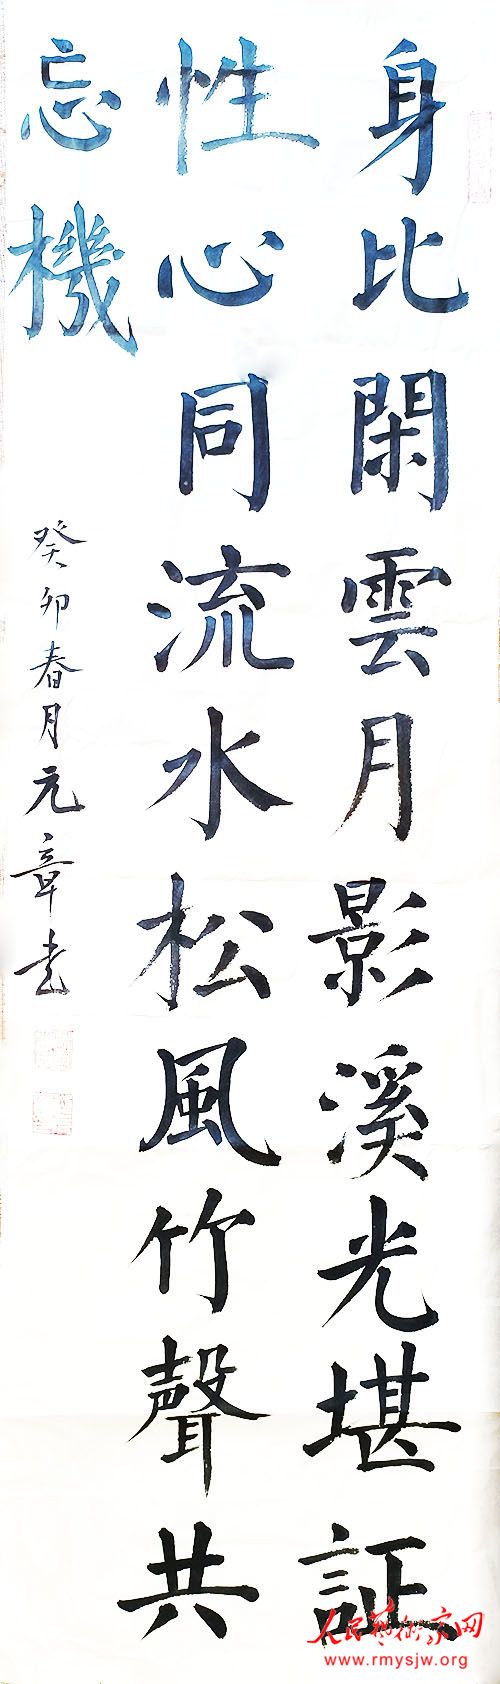 身比閑雲月影溪光堪証
性心同流水松風竹聲共
忘機
癸卯春月元章书
人民藝術家网
www.rmysjw.org